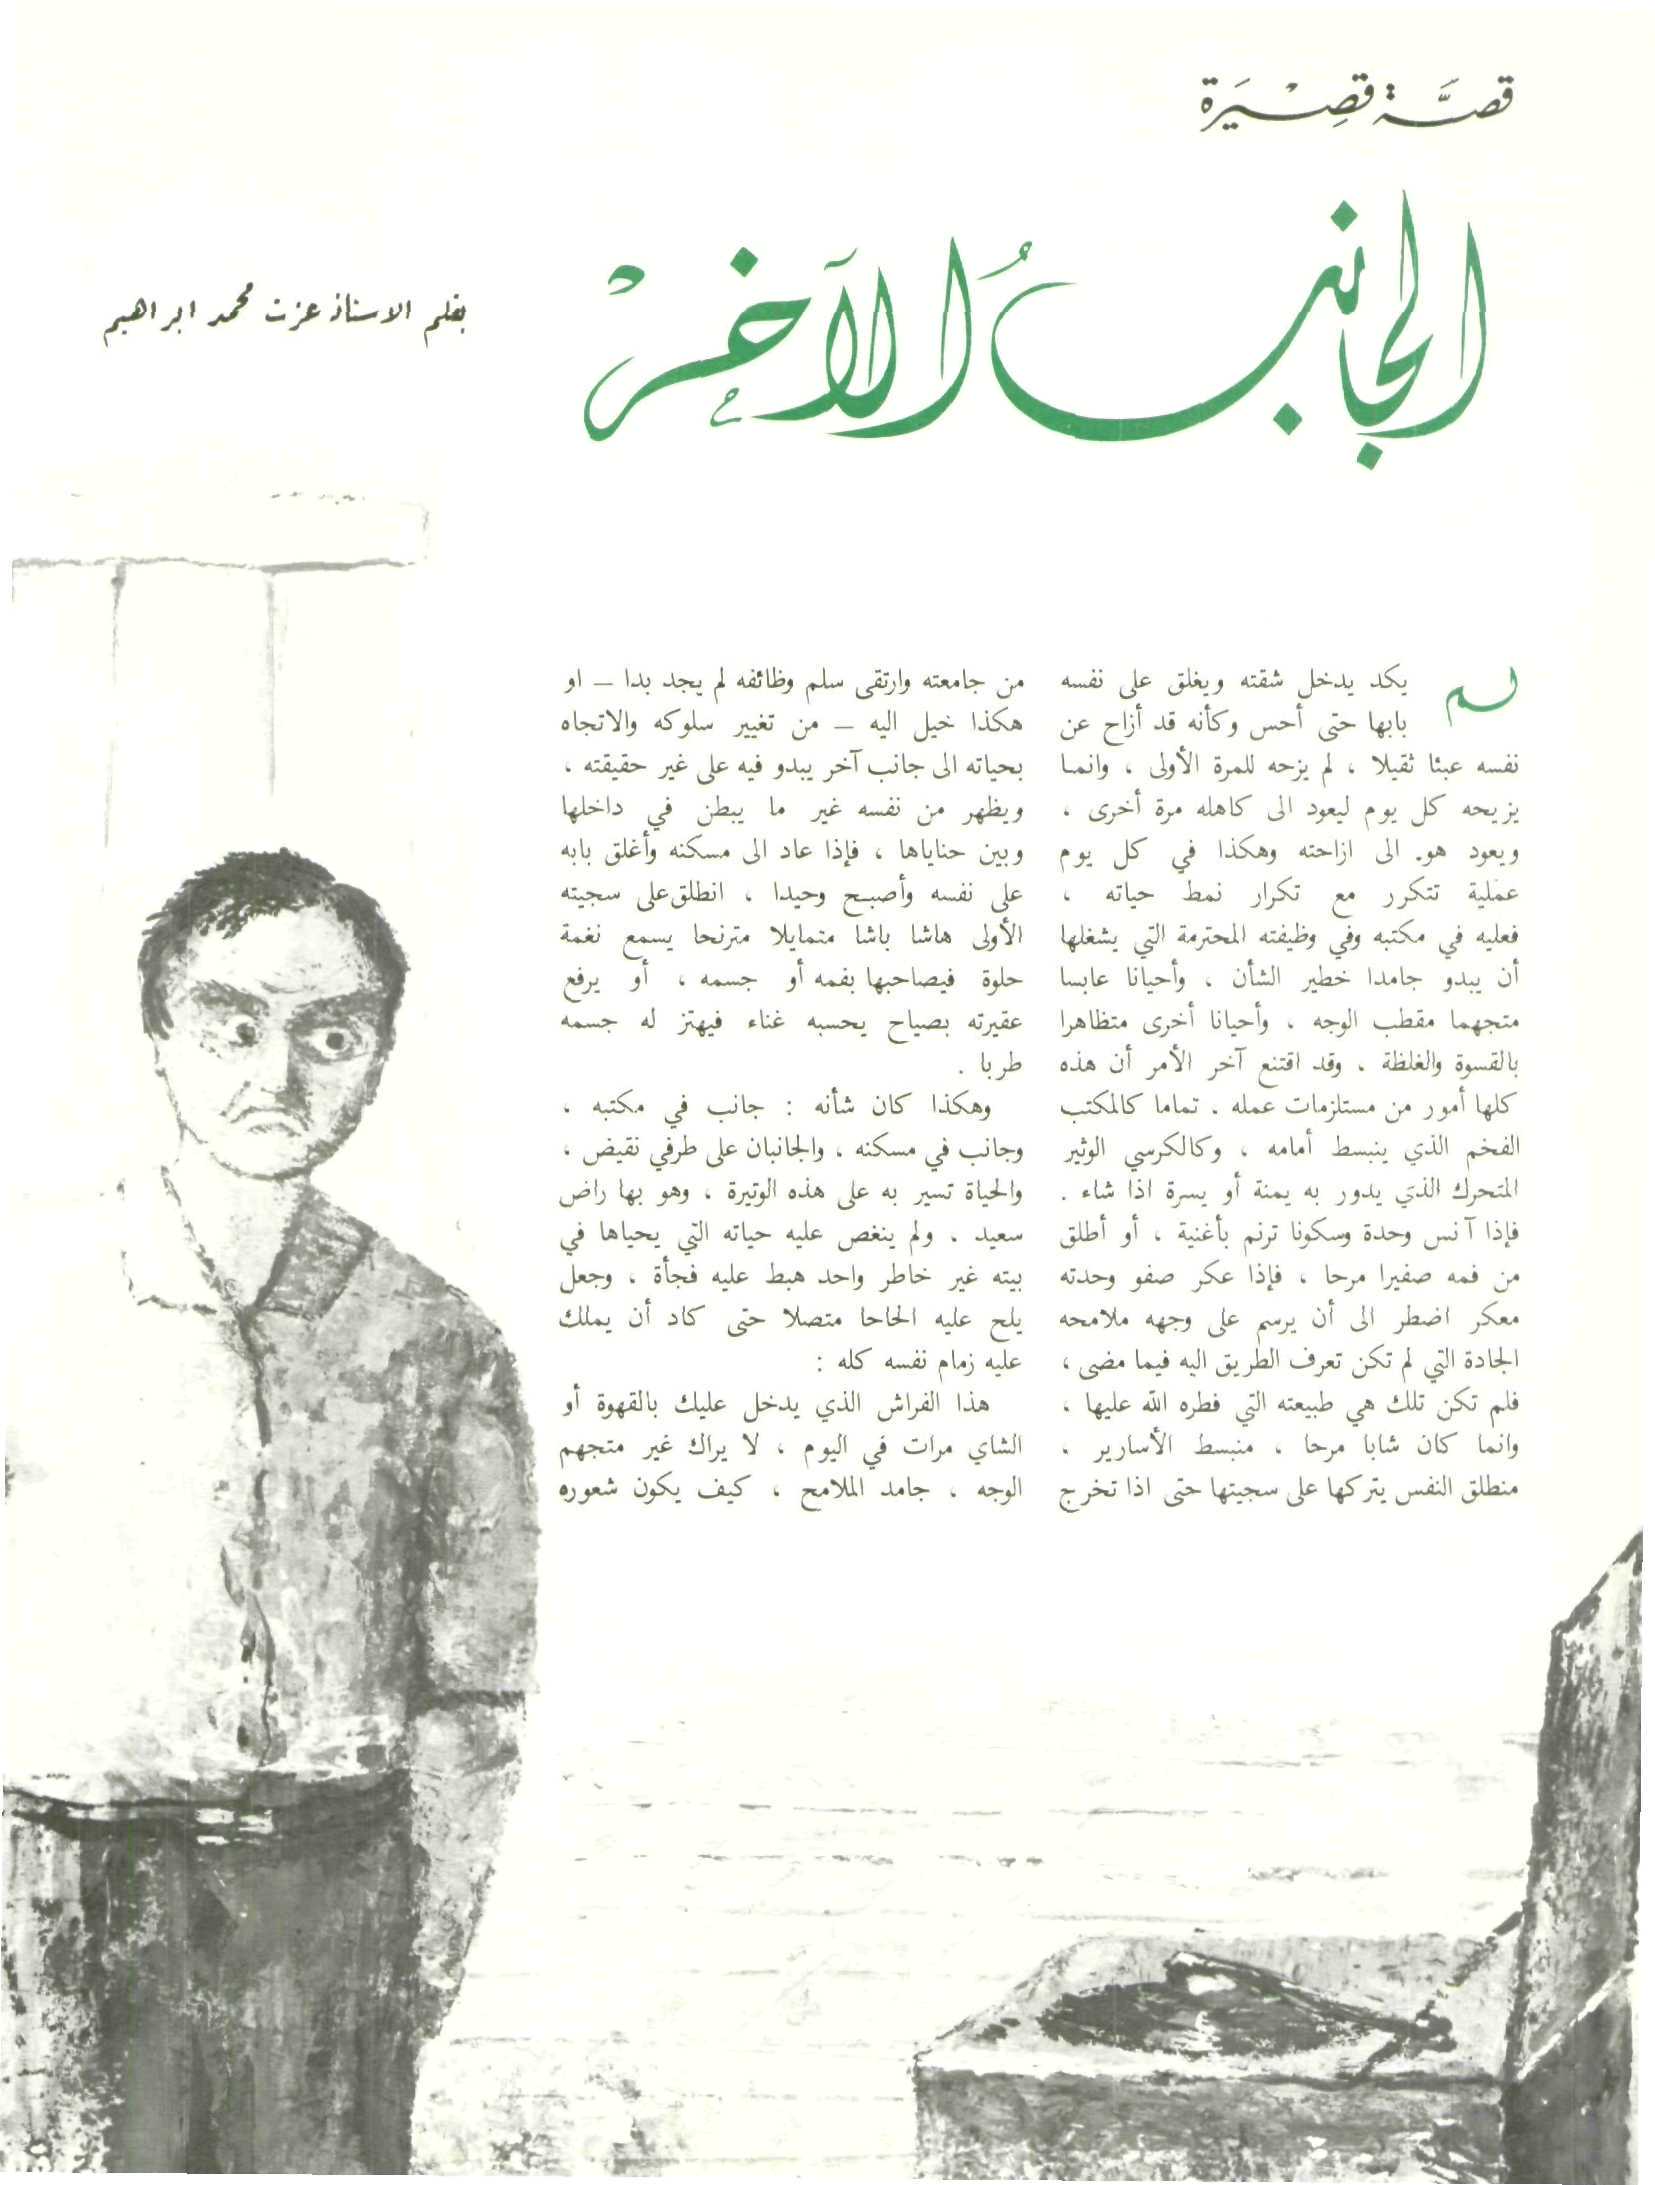 قصَّة قصِيْرَة
الجانبُ الآخرْ
بقلم الاستاذ عزت محمد ابراهيم
لم يكد يدخل شقته ويغلق على نفسه
بابها حتى أحس وكأنه قد أزاح عن
نفسه عبئا ثقيلا ، لم يزحه للمرة الأولى ، وانما
يزيحه كل يوم ليعود الى كاهله مرة أخرى ،
ويعود هو. الى ازاحته وهكذا في كل يوم
عملية تتكرر مع تكرار نمط حياته ،
فعليه في مكتبه وفي وظيفته المحترمة التي يشغلها
أن يبدو جامدا خطير الشأن ، وأحيانا عابسا
متجهما مقطب الوجه ، وأحيانا أخرى متظاهرا
بالقسوة والغلظة ، وقد اقتنع آخر الأمر أن هذه
كلها أمور من مستلزمات عمله . تماما كالمكتب
الفخم الذي ينبسط أمامه ، وكالكرسي الوثير
المتحرك الذي يدور به يمنة أو يسرة اذا شاء .
فإذا آنس وحدة وسكونا ترنم بأغنية ، أو أطلق
من فمه صفيرا مرحا ، فإذا عكر صفو وحدته
معكر اضطر الى أن يرسم على وجهه ملامحه
الجادة التي لم تكن تعرف الطريق اليه فيما مضى ،
فلم تكن تلك هي طبيعته التي فطره الله عليها ،
وانما كان شابا مرحا ، منبسط الأسارير ،
منطلق النفس يتركها على سجيتها حتى اذا تخرج
من جامعته وارتقى سلم وظائفه لم يجد بدا ــ او
هكذا خيل اليه ــ من تغيير سلوكه والاتجاه
بحياته الى جانب آخر يبدو فيه على غير حقيقته ،
ويظهر من نفسه غير ما يبطن في داخلها
وبين حناياها ، فإذا عاد الى مسكنه وأغلق بابه
على نفسه وأصبح وحيدا ، انطلق على سجيته
الأولى هاشا باشا متمايلا مترنحا يسمع نغمة
حلوة فيصاحبها بفمه أو جسمه ، أو يرفع
عقيرته بصياح يحسبه غناء فيهتز له جسمه
طربا .
وهكذا كان شأنه : جانب في مكتبه ،
وجانب في مسكنه ، والجانبان على طرفي نقيض ،
والحياة تسير به على هذه الوتيرة ، وهو بها راض
سعيد . ولم ينغص عليه حياته التي يحياها في
بيته غير خاطر واحد هبط عليه فجأة ، وجعل
يلح عليه الحاحا متصلا حتى كاد أن يملك
عليه زمام نفسه كله :
هذا الفراش الذي يدخل عليك بالقهوة أو
الشاي مرات في اليوم ، لا يراك غير متجهم
الوجه ، جامد الملامح ، كيف يكون شعوره